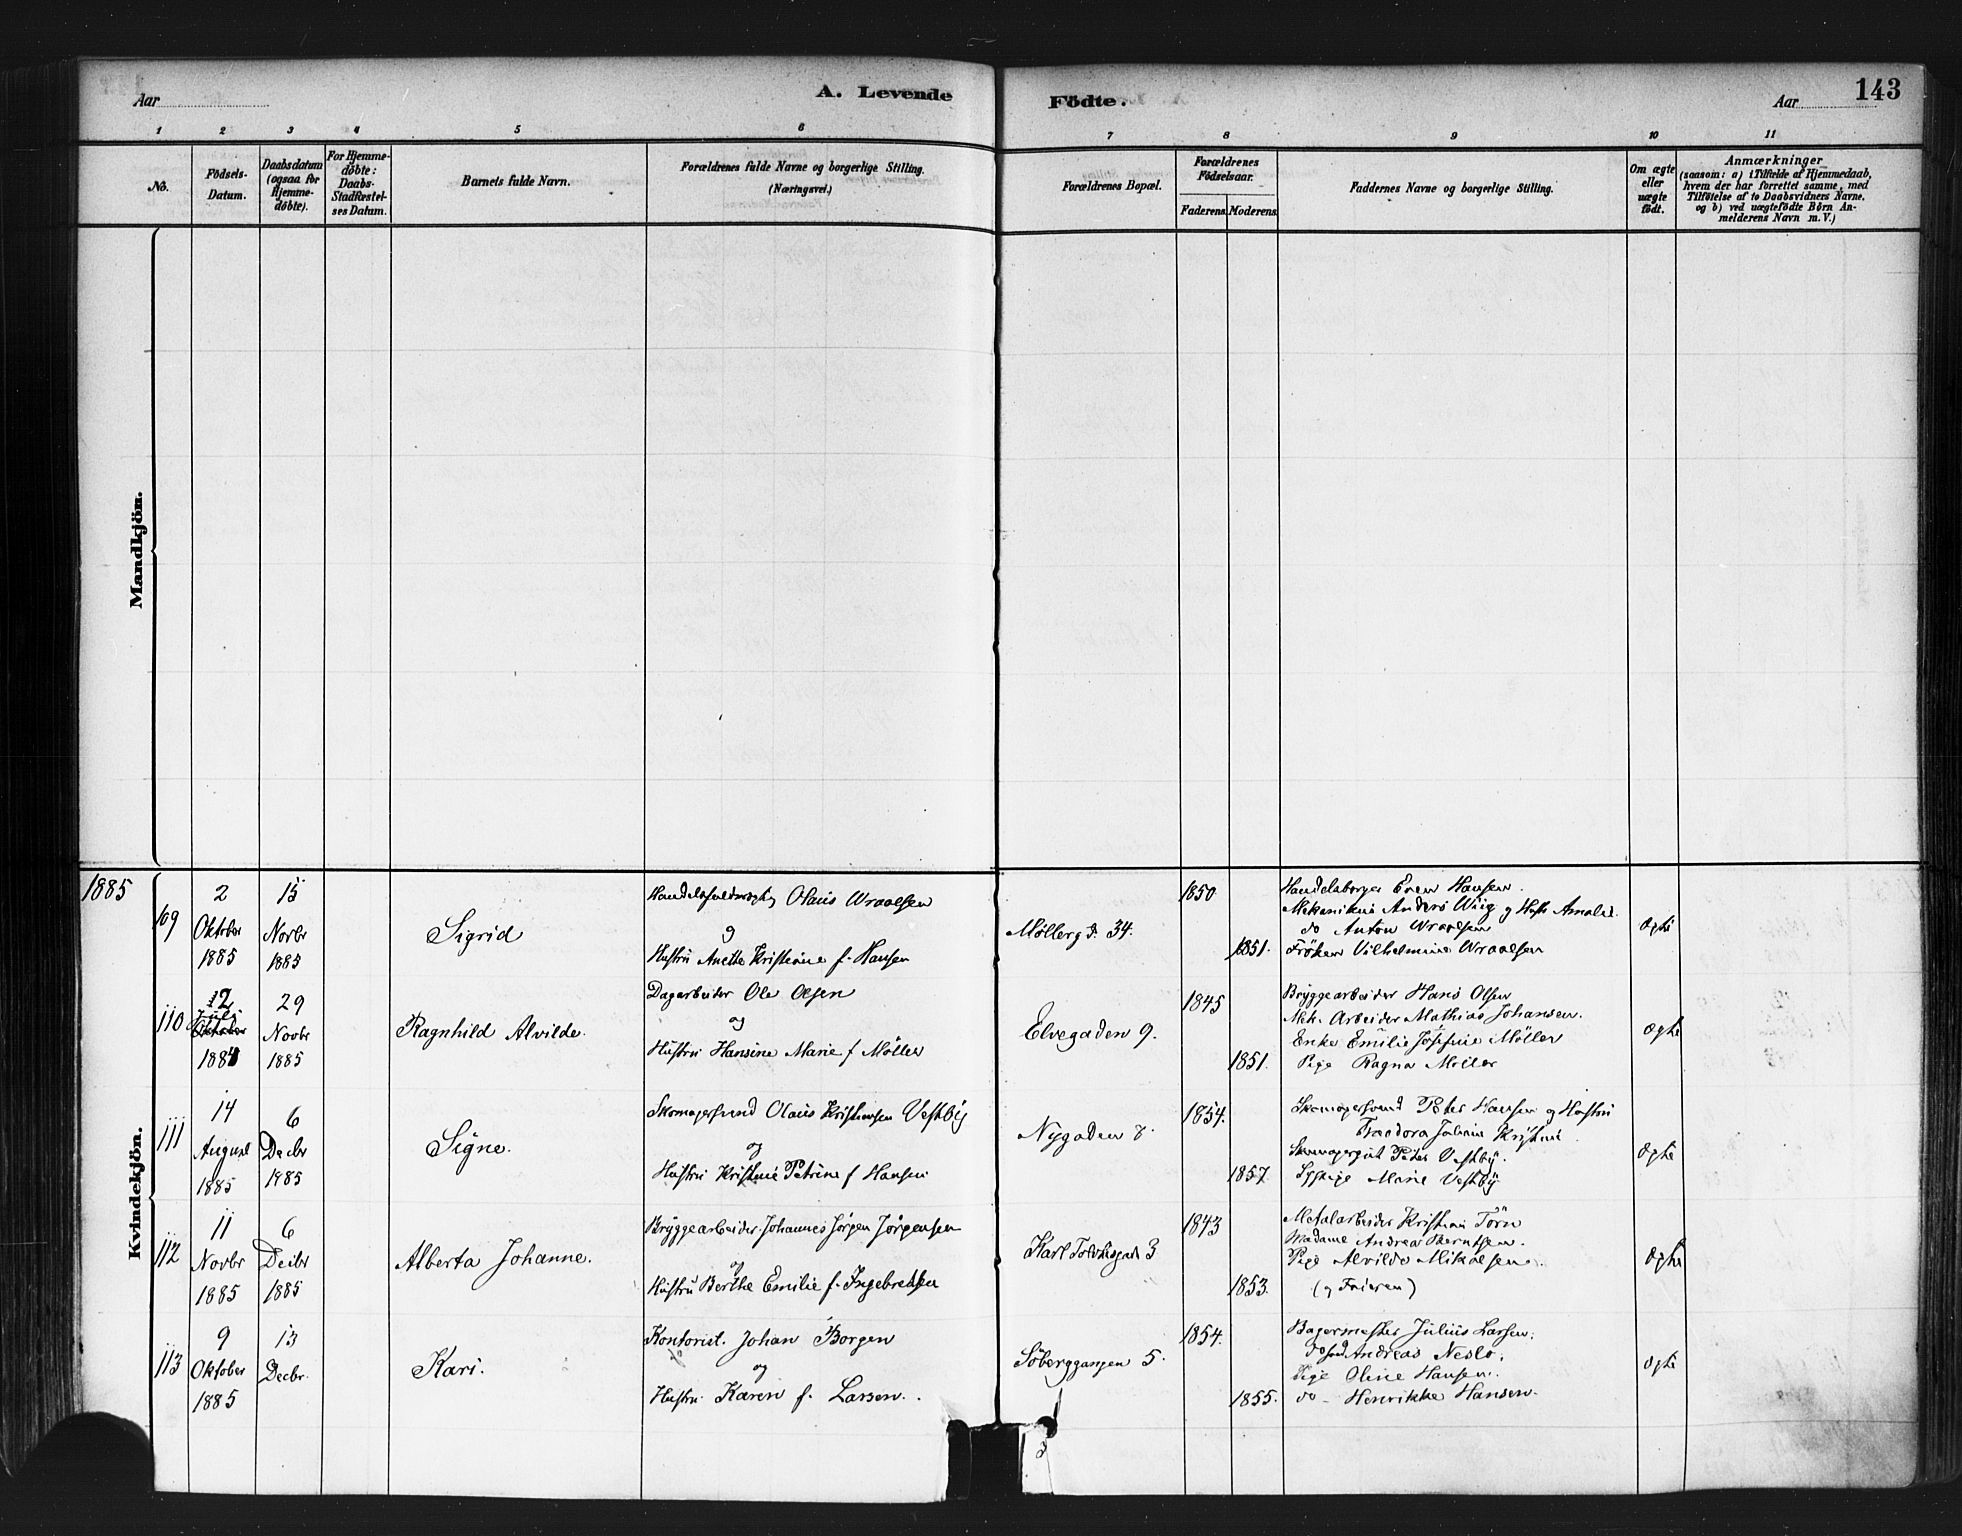 143
Aar
A. Levende
Födte.
Aar
1 2 3 4 5 6 7 8 9 10 11
No.
Födsels-
Datum.
Daabsdatum
(ogsaa for
Hjemme-
döbte).
For Hjemme-
döbte:
Daabs-
Stadfæstel-
ses Datum.
Barnets fulde Navn.
Forældrenes fulde Navne og borgerlige Stilling.
(Næringsvei.)
Forældrenes Bopæl.
Forældrenes
Födselsaar.
Faderens. Moderens.
Faddernes Navne og borgerlige Stilling.
Om ægte
eller
uægte
födt.
Anmærkninger
(saasom: a) i Tilfælde af Hjemmedaab,
hvem der har forrettet samme, med
Tilföielse af to Daabsvidners Navne,
og b) ved uægtefödte Börn An-
melderens Navn m.V.)
Mandkjön.
Kvindekjön.
1885
109
2
Oktober
1885
15
Novbr
1885
Sigrid
Olaus Wraalsen
og
Hustru Anette Kristiane f. Hansen
Møllergd. 34.
1850
1851.
Handelsborger Even Hansen.
Mekanikus Anders Wiig og Hustr. Amalie
do Anton Wraalsen
Frøken Vilhelmine Wraalsen
ægte
110
12
Juli
Oktober
1884
29
Novbr
1885
Ragnhild Alvilde.
Dagarbeider Ole Olsen
og
Hustru Hansine Marie f Møller
Elvegaden 9.
1845
1851.
Bryggearbeider Hans Olsen
Mek. Arbeider Mathias Johansen.
Enke Emilie Josefine Møller
Pige Ragna Møller
ægte
111
14
August
1885
6
Decbr
1885
Signe.
Skomagersvend Olaus Kristiansen Vestby
og
Hustru Kristine Petrine f Hansen
Nygaden 8.
1854.
1857.
Skomagersvend Peter Hansen og Hustru
Skomagergut Peter Vestby.
Sypige Marie Vestby
ægte
112
11
Novbr
1885
6
Decbr
1885
Alberta Johanne.
Bryggearbeider Johannes Jørgen Jørgensen
og
Hustru Berthe Emilie f. Ingebretsen
3
1843
1853.
Metalarbeider Kristian Törn
Madame Andrea Berntsen.
Pige Alvilde Mikalsen.
(og Faderen)
ægte
113
9
Oktober
1885
13
Decbr.
Kari.
Kontorist. Johan Borgen
og
Hustru Karen f. Larsen.
Söberggangen 5.
1854.
1855.
Bagermester Julius Larsen.
Andreas Neslo.
Pige Oline Hansen.
do - Henrikke Hansen.
ægte